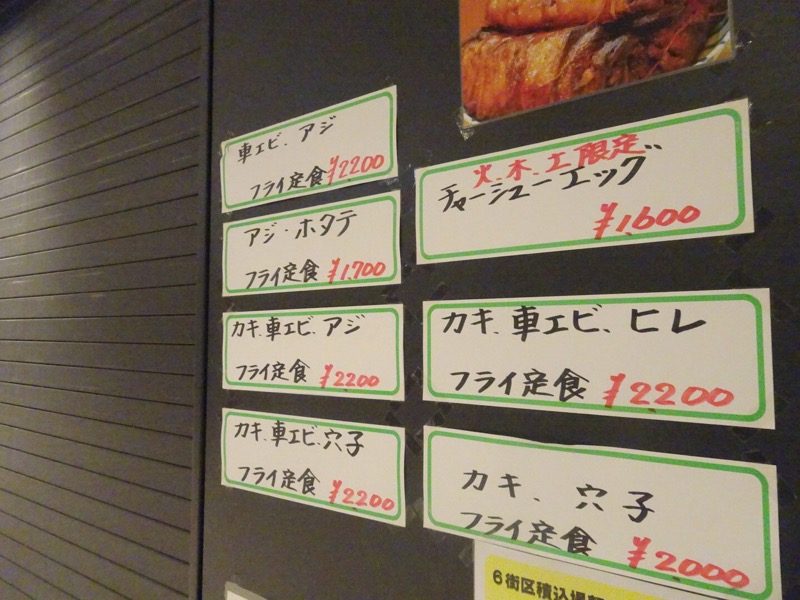 車エビ、アジ
フライ定食 ¥2200
アジ・ホタテ
フライ定食 ¥1,700
カキ、車エビ、アジ
フライ定食 ¥2200
カキ、車エビ、穴子
フライ定食 ¥2200
火、木、土限定
チャーシューエッグ
¥1,600
カキ、車エビ、ヒレ
フライ定食 ¥2200
カキ、穴子
フライ定食 ¥2000
6街区積込場